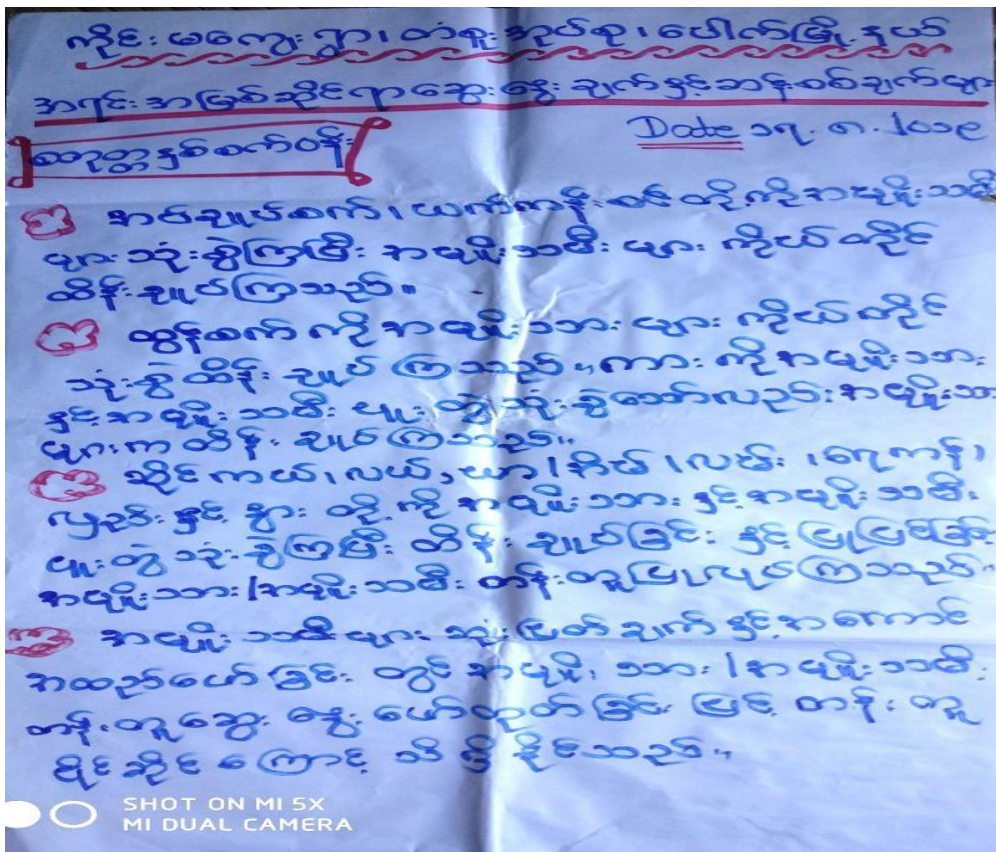 ကိုင်းမကျေးရွာ၊ တံခူးအုပ်စု၊ ပေါက်မြို့နယ်
အရင်းအမြစ်ဆိုင်ရာဆွေးနွေးချက်နှင့်ဆန်းစစ်ချက်များ
Date ၁၇.၈.၂၀၁၉
စတုတ္ထနှစ်စက်ဝန်း
အပ်ချုပ်စက်၊ ယက်ကန်းစင် တို့ကိုအမျိုးသမီး
များသုံးစွဲကြပြီး အမျိုးသမီးများ ကိုယ်တိုင်
ထိန်းချုပ်ကြသည်။
ထွန်စက်ကိုအမျိုးသားများ ကိုယ်တိုင်
သုံးစွဲထိန်းချုပ်ကြသည်။ ကားကိုအမျိုးသား
နှင့်အမျိုးသမီး ပူးတွဲသုံးစွဲသော်လည်းအမျိုးသား
များကထိန်းချုပ်ကြသည်။
ဆိုင်ကယ်၊ လယ်၊ ယာ၊ အိမ်၊ လမ်း၊ ရေကန်၊
လှည်းနှင့်နွား တို့ကိုအမျိုးသားနှင့်အမျိုးသမီး
ပူးတွဲသုံးစွဲကြပြီး ထိန်းချုပ်ခြင်းနှင့်ပြုပြင်ခြင်း
အမျိုးသား/အမျိုးသမီး တန်းတူပြုလုပ်ကြသည်။
အမျိုးသမီးများ ဆုံးဖြတ်ချက်နှင့်အကောင်
အထည်ဖော်ခြင်းတွင်အမျိုးသား/အမျိုးသမီး
တန်းတူဆွေးနွေးဖော်ထုတ်ခြင်းဖြင့်တန်းတူ
ပိုင်ဆိုင်ကြောင့်သိရှိနိုင်သည်။
SHOT ON MI 5X
MI DUAL CAMERA